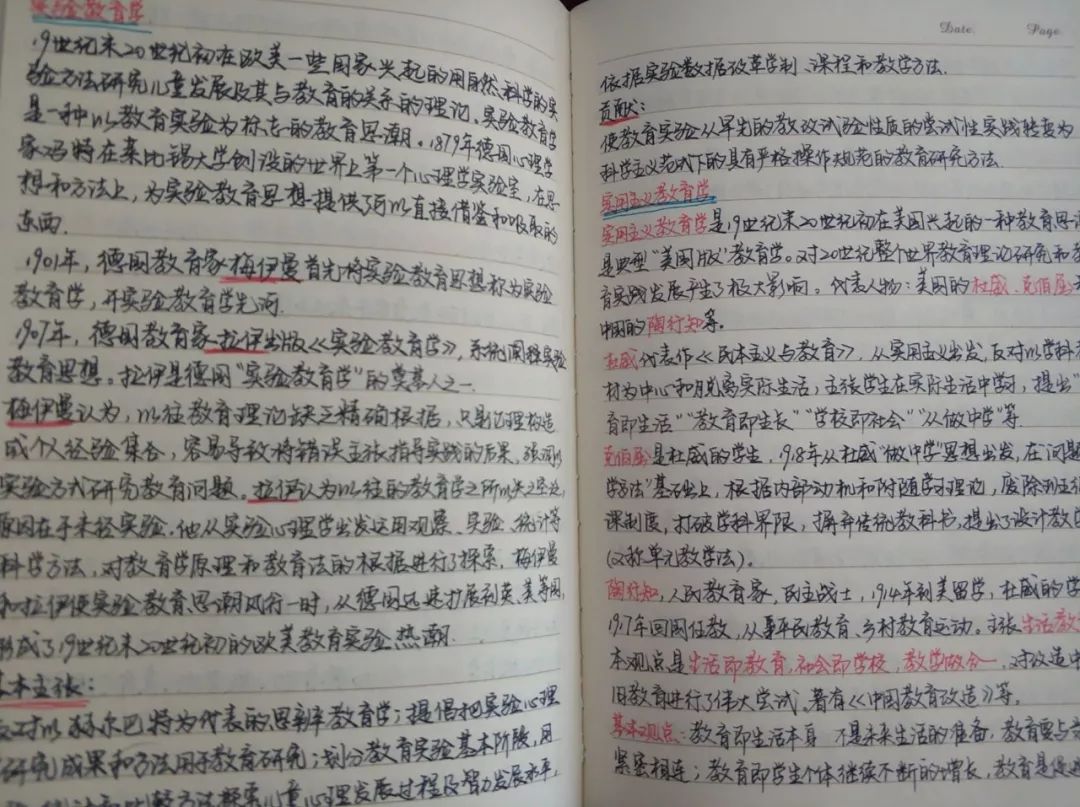 实验教育学
19世纪末20世纪初在欧美一些国家兴起的用自然科学的实
验方法研究儿童发展及其与教育的关系的理论。实验教育学
是一种以教育实验为标志的教育思潮。1879年德国心理学
家冯特在莱比锡大学创设的世界上第一个心理学实验室,在思
想和方法上,为实验教育思想提供了可以直接借鉴和吸取的
东西.
1901年,德国教育家梅伊曼首先将实验教育思想称为实验
教育学,开实验教育学先河.
1907年,德国教育家拉伊出版《实验教育学》,系统阐释实验
教育思想。拉伊是德国"实验教育学"的奠基人之一.
梅伊曼认为,以往教育理论缺乏精确根据,只是伦理构造
或个人经验集合,容易导致将错误主张指导实践的后果,强调以
实验方式研究教育问题。拉伊认为以往的教育学之所以失之空泛,
原因在于未经实验.他从实验心理学出发运用观察、实验、统计等
科学方法,对教育学原理和教育法的根据进行了探索,梅伊曼
和拉伊使实验教育思潮风行一时,从德国迅速扩展到英、美等国,
形成了19世纪末20世纪初的欧美教育实验热潮.
基本主张:
反对以赫尔巴特为代表的思辨教育学;提倡把实验心理
研究成果和方法用于教育研究;划分教育实验基本阶段,用
方法探索儿童心理发展过程及智力发展水平,
Date. Page.
依据实验数据改革学制、课程和教学方法.
贡献:
使教育实验从早先的教改试验性质的尝试性实践转变为
科学主义范式下的具有严格操作规范的教育研究方法.
实用主义教育学
实用主义教育学是19世纪末20世纪初在美国兴起的一种教育思
是典型"美国版"教育学。对20世纪整个世界教育理论研究和教
育实践发展产生了极大影响。代表人物:美国的杜威、克伯屈
中国的陶行知等。
杜威代表作《民本主义与教育》,从实用主义出发,反对以学科
材为中心和脱离实际生活,主张学生在实际生活中学习,提出"
育即生活""教育即生长""学校即社会""从做中学"等.
克伯屈是杜威的学生,1918年从杜威"做中学"思想出发,在问题
学方法"基础上,根据内部动机和附随学习理论,废除班主任
课制度,打破学科界限,摒弃传统教科书,提出了设计教学
(又称单元教学法)。
陶行知,人民教育家,民主战士,1914年到美留学,杜威的学
1917年回国任教,从事平民教育、乡村教育运动。主张生活教
本观点是生活即教育,社会即学校,教学做合一,对改造中
旧教育进行了伟大尝试,著有《中国教育改造》等.
基本观点:教育即生活本身,不是未来生活的准备,教育要与
紧密相连;教育即学生个体继续不断的增长,教育是促进